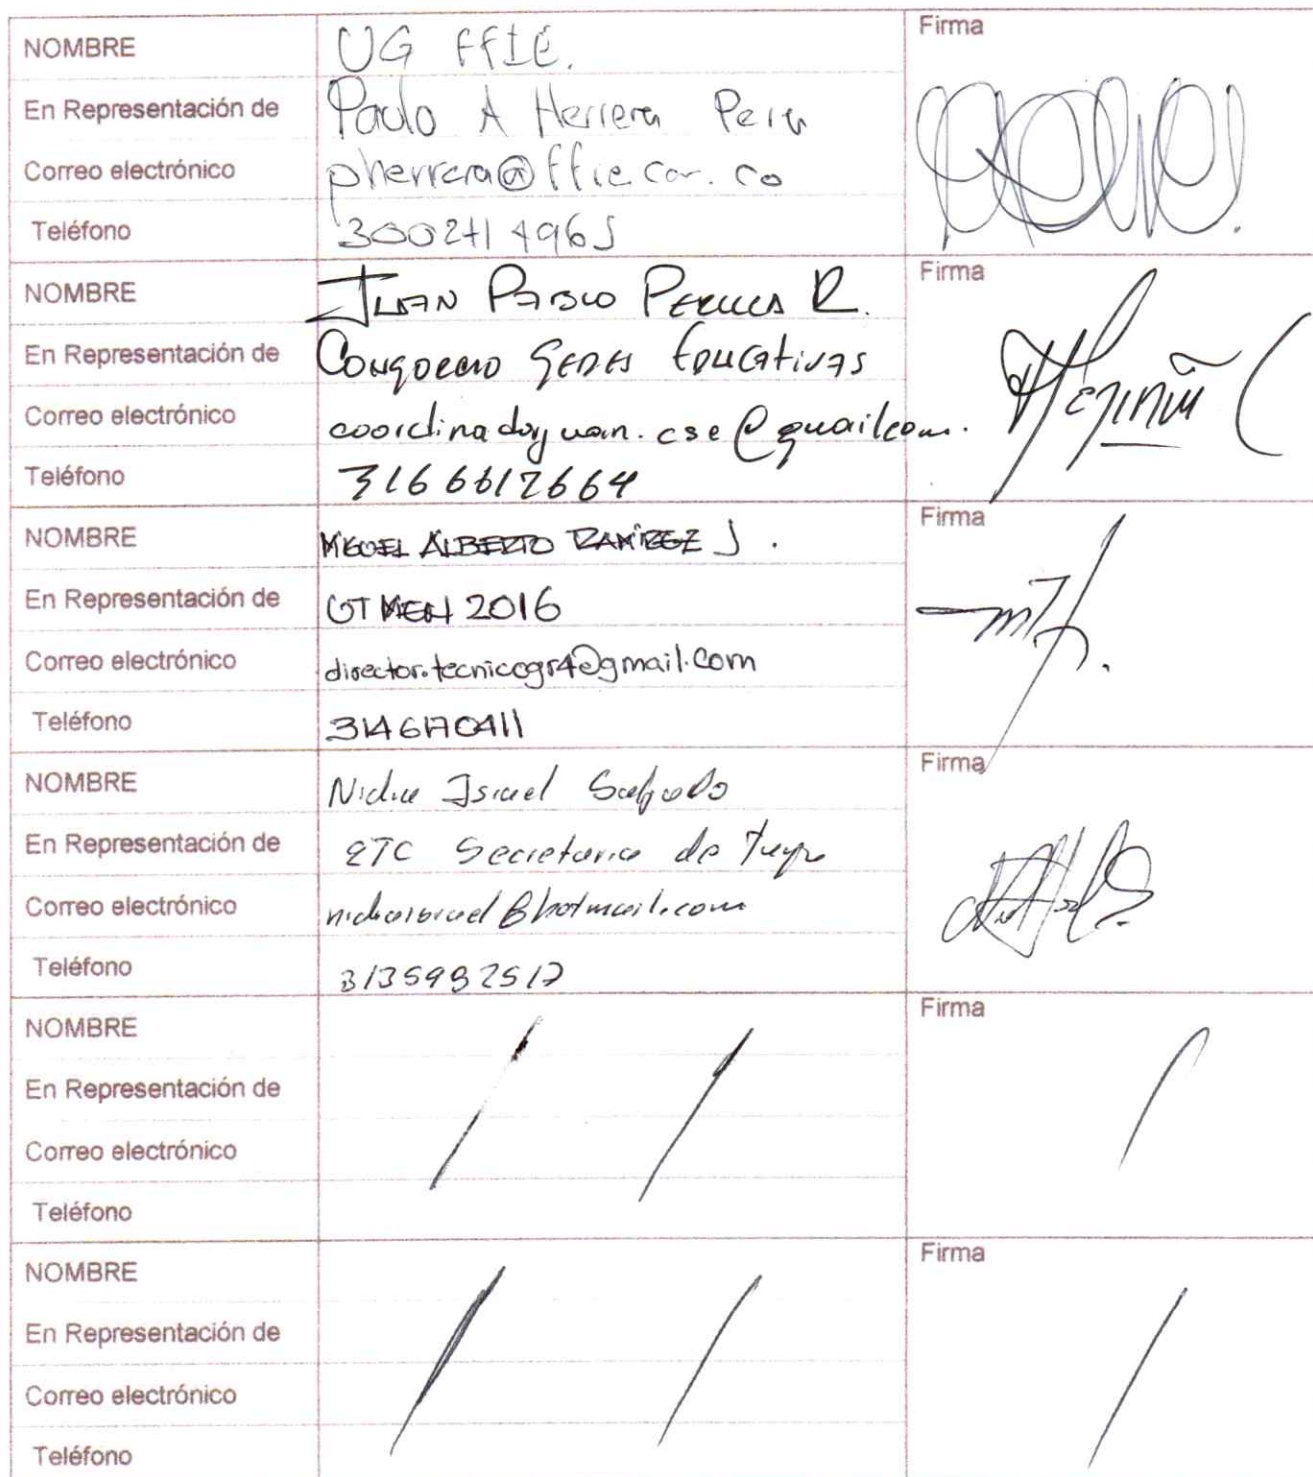 NOMBRE UG FFIE. Firma
En Representación de Paulo A Herrera
Correo electrónico pherrera@ffie.com.co
Teléfono
NOMBRE JUAN PABLO R. Firma
En Representación de SEDES EDUCATIVAS
Correo electrónico coordinadorjuan.cse@gmail.com.
Teléfono 3166612664
NOMBRE MIGUEL ALBERTO RAMÍREZ J. Firma
En Representación de GT MEN 2016
Correo electrónico director.tecnicogr4@gmail.com
Teléfono 3146170411
NOMBRE Nidia Israel Salgado Firma
En Representación de ETC Secretaria de
Correo electrónico nidiaisrael@hotmail.com
Teléfono
NOMBRE Firma
En Representación de
Correo electrónico
Teléfono
NOMBRE Firma
En Representación de
Correo electrónico
Teléfono